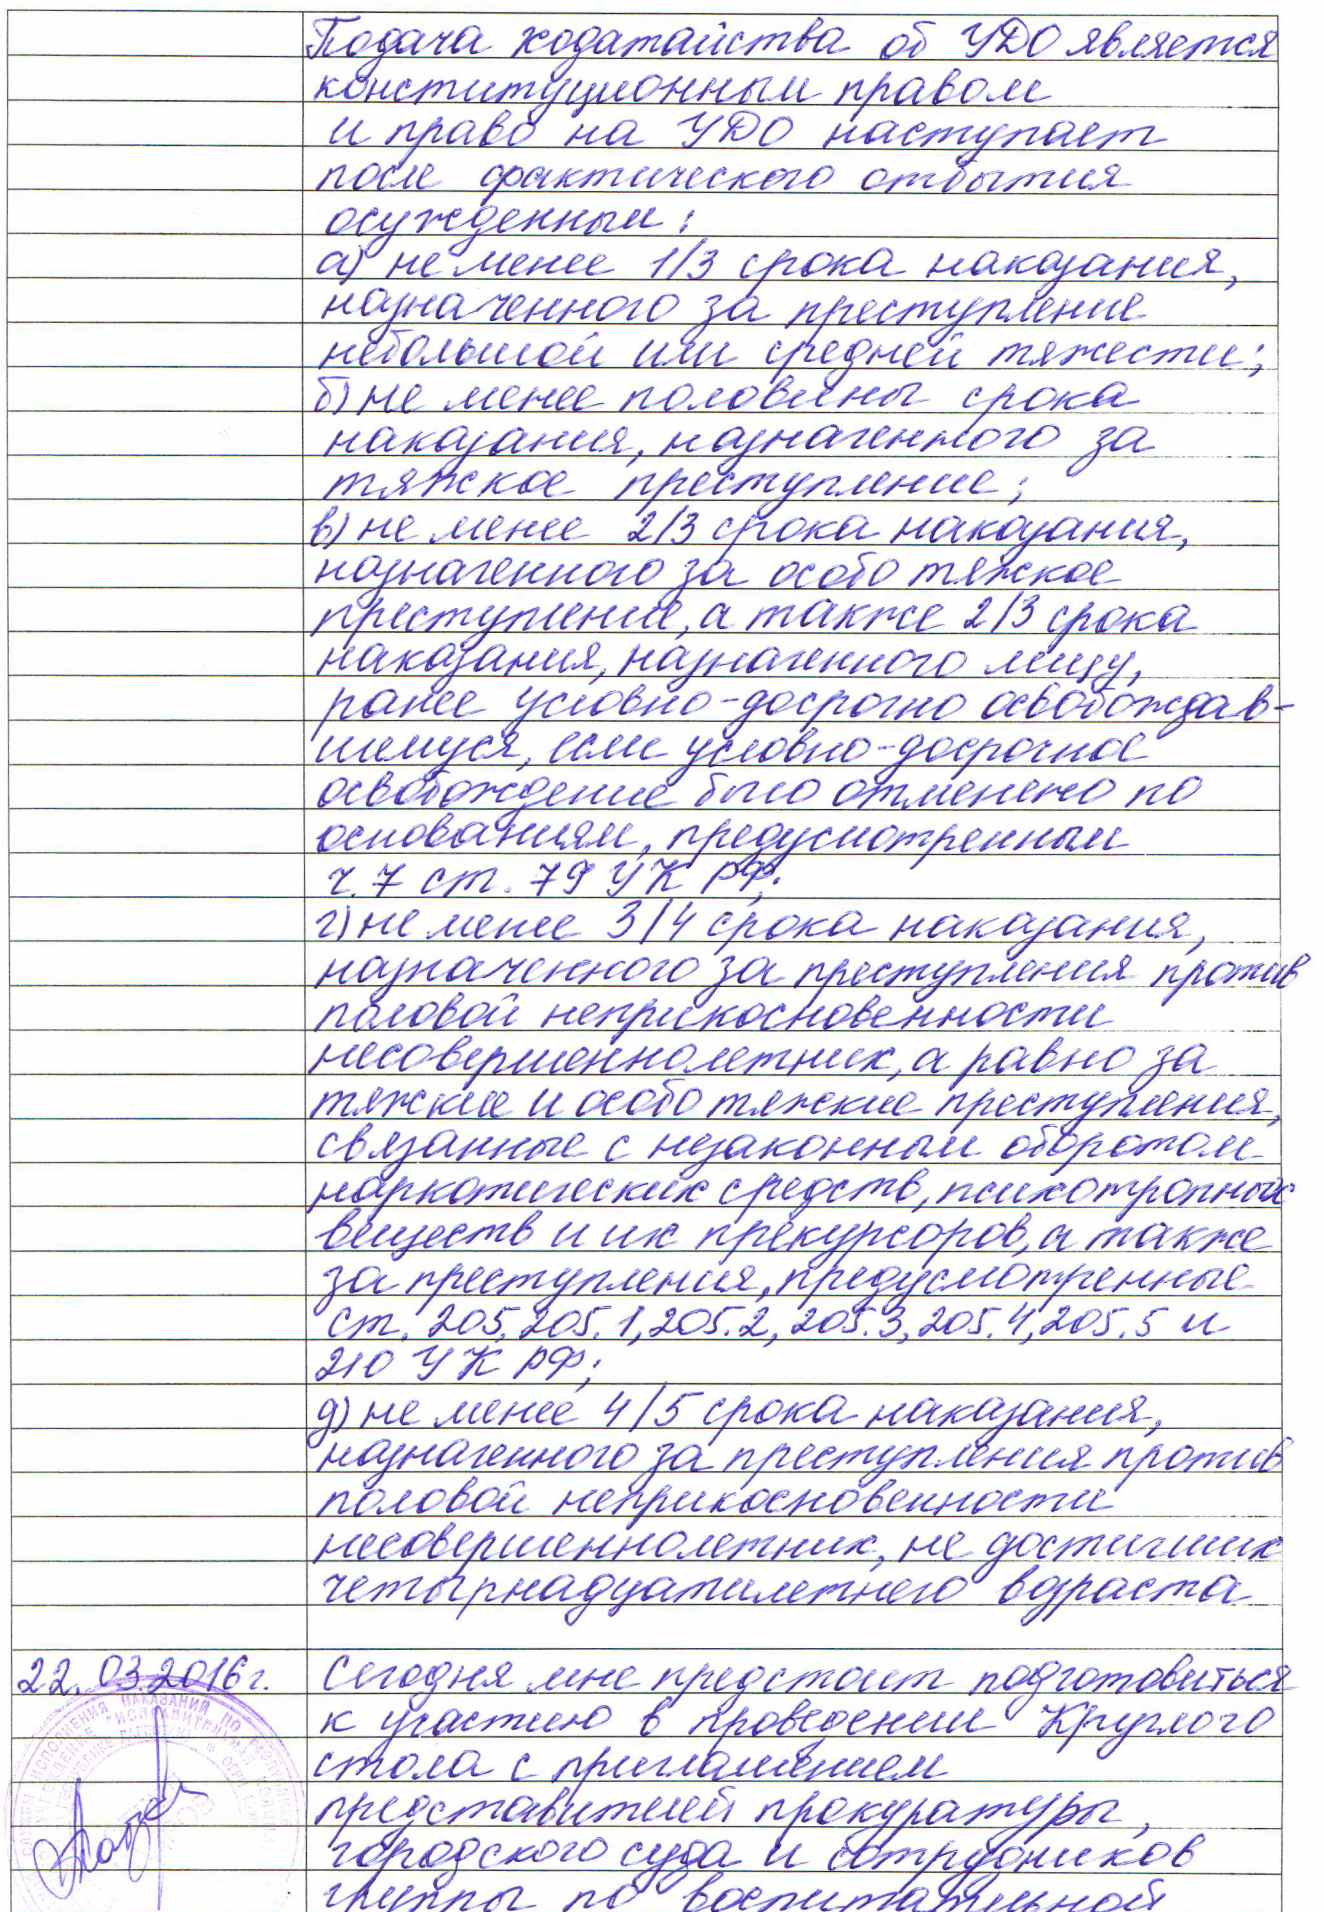 Подача ходатайства об УДО является
конституционным правом
и право на УДО наступает
после фактического отбытия
осужденным:
а) не менее 1/3 срока наказания,
назначенного за преступление
небольшой или средней тяжести;
б) не менее половины срока
наказания, назначенного за
тяжкое преступление;
в) не менее 2/3 срока наказания,
назначенного за особо тяжкое
преступление, а также 2/3 срока
наказания, назначенного лицу,
ранее условно-досрочно освобождав-
шемуся, если условно-досрочное
освобождение было отменено по
основаниям, предусмотренным
ч.7 ст. 79 УК РФ;
г) не менее 3/4 срока наказания,
назначенного за преступления против
половой неприкосновенности
несовершеннолетних, а равно за
тяжкие и особо тяжкие преступления,
связанные с незаконным оборотом
наркотических средств, психотропных
веществ и их прекурсоров, а также
за преступления, предусмотренные
ст. 205, 205.1, 205.2, 205.3, 205.4, 205.5 и
210 УК РФ;
д) не менее 4/5 срока наказания,
назначенного за преступления против
половой неприкосновенности
несовершеннолетних, не достигших
четырнадцатилетнего возраста
22.03.2016г. Сегодня мне предстоит подготовиться
к участию в проведении Круглого
стола с приглашением
представителей прокуратуры,
городского суда и сотрудников
группы по воспитательной